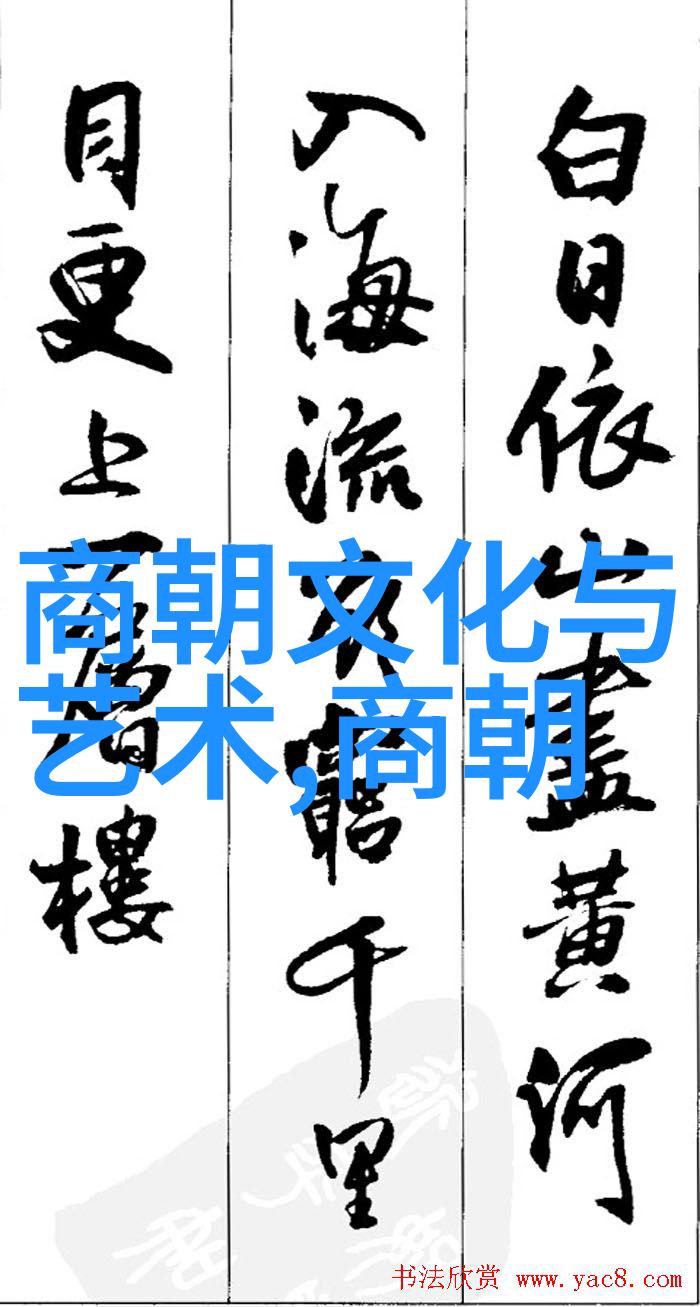 白日依山盡黄河
入海流欲窮千里
目更上一層樓
商朝文化与
艺术,商朝
书法欣赏 www.yac8.com